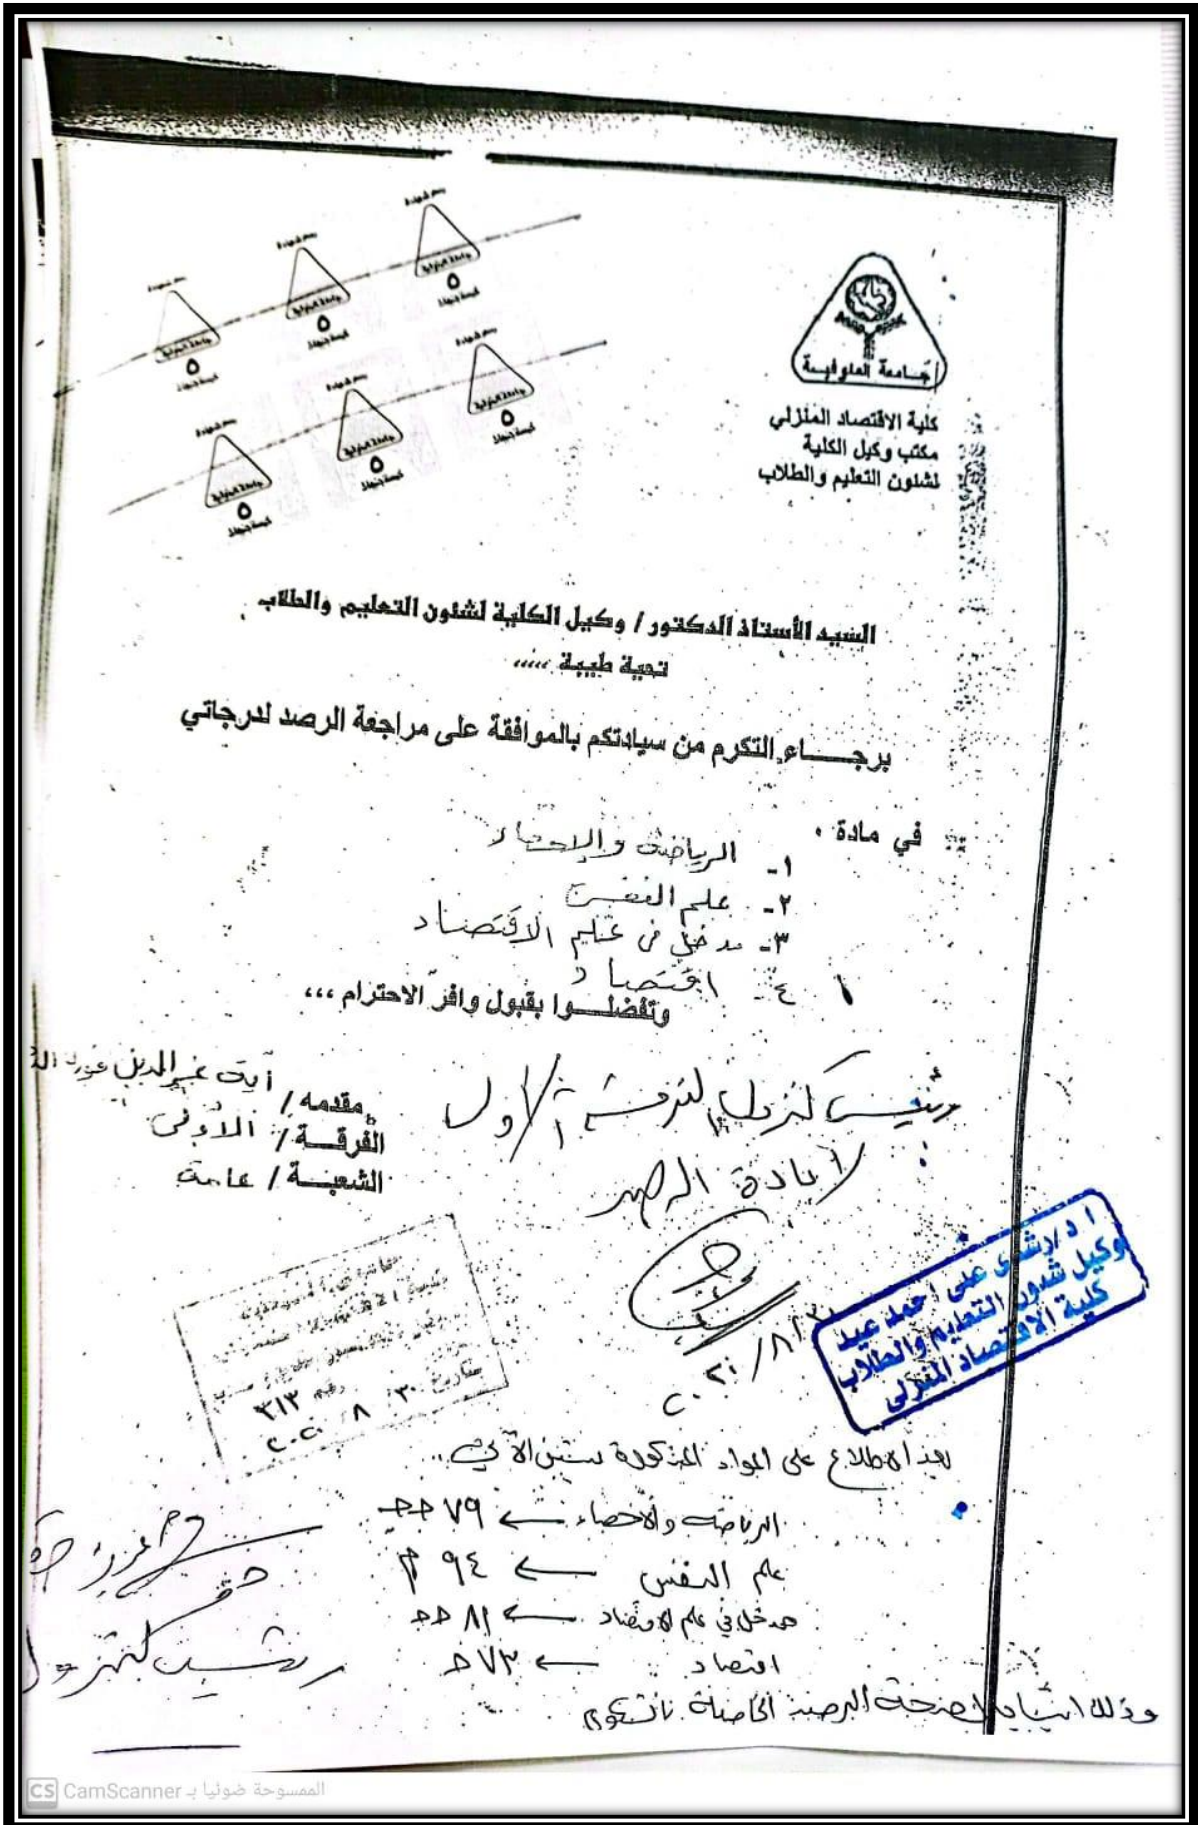 جامعة المنوفية
كلية الاقتصاد المنزلي
مكتب وكيل الكلية
لشئون التعليم والطلاب
رسم شهادة
جامعة المنوفية
٥
خمسة جنيهات
رسم شهادة
جامعة المنوفية
٥
خمسة جنيهات
رسم شهادة
جامعة المنوفية
٥
خمسة جنيهات
رسم شهادة
جامعة المنوفية
٥
خمسة جنيهات
رسم شهادة
جامعة المنوفية
٥
خمسة جنيهات
رسم شهادة
جامعة المنوفية
٥
خمسة جنيهات
السيد الأستاذ الدكتور / وكيل الكلية لشئون التعليم والطلاب
تحية طيبة ،،،،،
برجـــــاء التكرم من سيادتكم بالموافقة على مراجعة الرصد لدرجاتي
في مادة
١- الرياضة والإحصاء
٢- علم النفس
٣- مدخل في علم الاقتصاد
٤- اقتصاد
وتفضلـــوا بقبول وافر الاحترام ،،،
مقدمه / آية
الفرقـــة / الأولى
الشعبـــة / عامة
رئيس كنترول الفرقة الأولى
لإعادة الرصد
٢٠٢٠/٨/٣٠
ا د/رشدى على احمد عيد
وكيل شئون التعليم والطلاب
كلية الاقتصاد المنزلى
رقم ٣١٣
بتاريخ ٣٠ / ٨ / ٢٠٢٠
بعد الاطلاع على المواد المذكورة تبين الآتي
الرياضة والاحصاء ← ٧٩ جج
علم النفس ← ٩٤ م
مدخل في علم الاقتصاد ← ٨١ جج
اقتصاد ← ٧٣ ج
رئيس كنترول
وذلك
CS CamScanner الممسوحة ضوئيا بـ